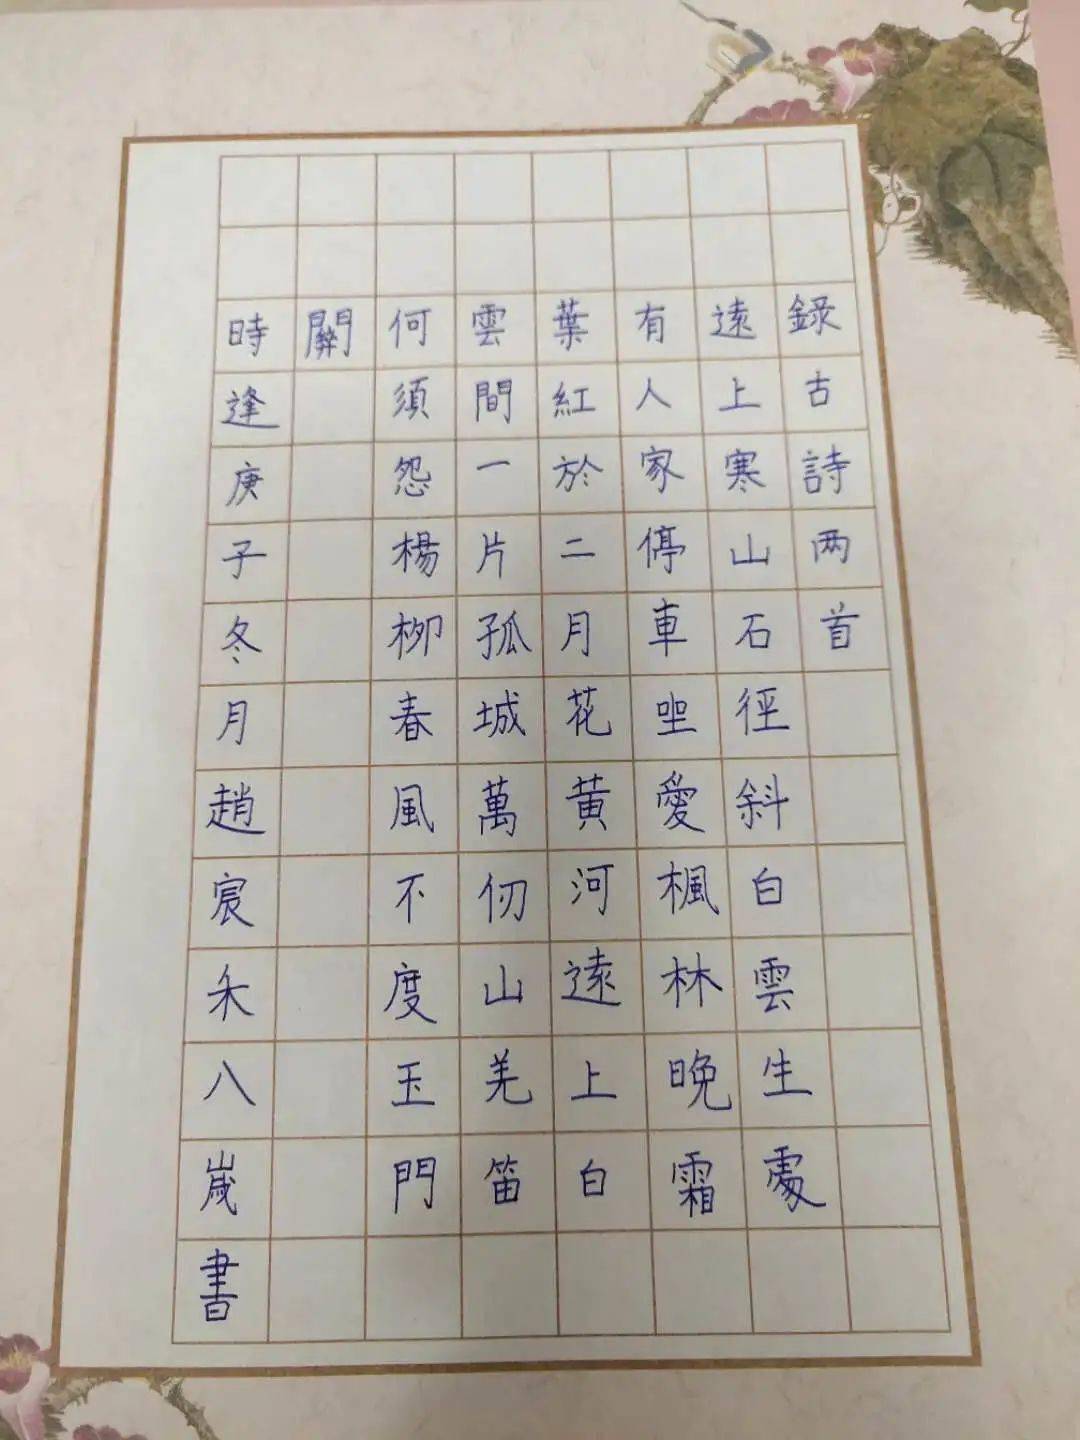 錄古詩两首
遠上寒山石徑斜白雲生處
有人家停車坐愛楓林晚霜
葉紅於二月花黃河遠上白
雲間一片孤城萬仞山羌笛
何須怨楊柳春風不度玉門
關
時逢庚子冬月趙宸禾八歲書